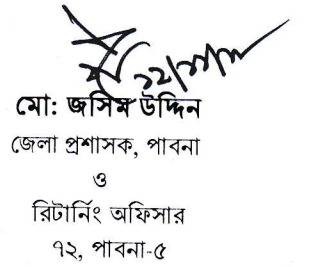 মো: জসিম উদ্দিন
জেলা প্রশাসক, পাবনা
ও
রিটার্নিং অফিসার
৭২, পাবনা-৫